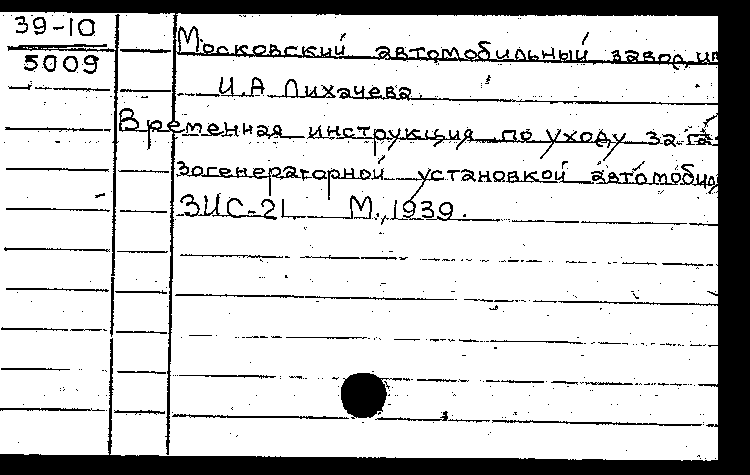 39-10
5009
Московский автомобильный завод им
И.А Лихачева.
Временная инструкция по уходу за га-
зогенераторной установкой автомобиля
ЗИС-21 М., 1939.